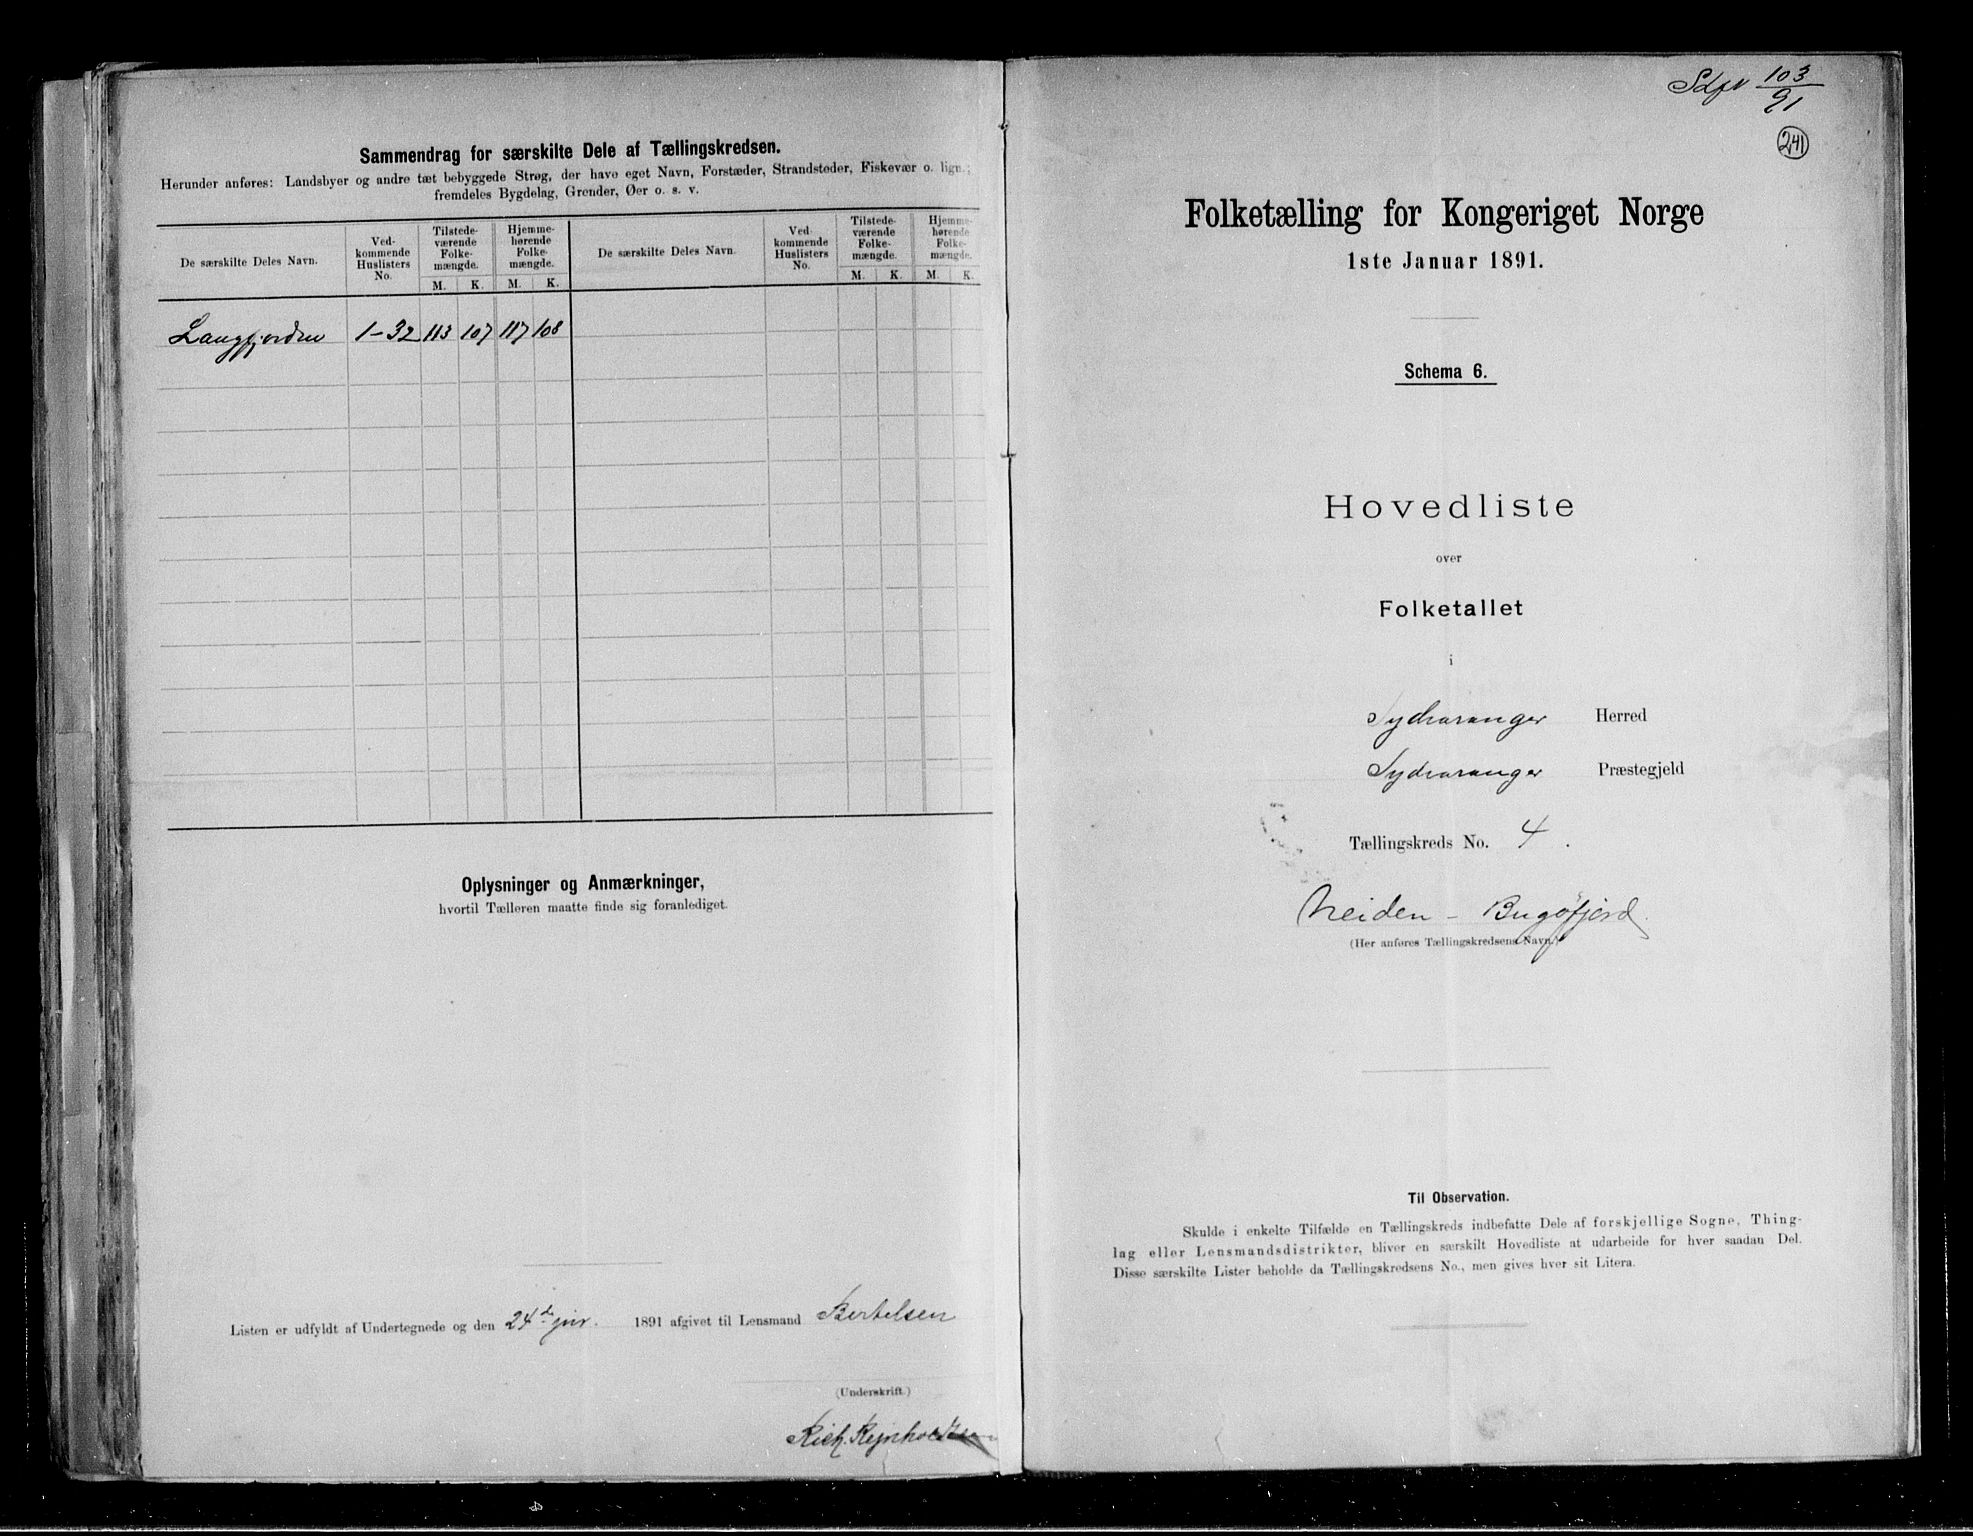 Sammendrag for særskilte Dele af Tællingskredsen.
Herunder anføres: Landsbyer og andre tæt bebyggede Strøg, der have eget Navn, Forstæder, Strandsteder, Fiskevær o. lign.;
fremdeles Bygdelag, Grender, Øer o. s. v.
De særskilte Deles Navn.
Ved-
kommende
Huslisters
No.
Tilstede-
værende
Folke-
mængde.
Hjemme-
hørende
Folke-
mængde.
M. K. M. K.
De særskilte Deles Navn.
Ved-
kommende
Huslisters
No.
Tilstede-
værende
Folke-
mængde.
Hjemme-
hørende
Folke-
mængde.
M. K. M. K.
Langfjorden 1-32 113 107 117 108
Oplysninger og Anmærkninger,
hvortil Tælleren maatte finde sig foranlediget.
Listen er udfyldt af Undertegnede og den 24d 1891 afgivet til Lensmand Bertelsen
(Underskrift.)
Rich. Reinholdtsen
103
91
241
Folketælling for Kongeriget Norge
1ste Januar 1891.
Schema 6.
Hovedliste
over
Folketallet
i
Sydvaranger Herred
Sydvaranger Præstegjeld
Tællingskreds No. 4.
Neiden - Bugøfjord.
(Her anføres Tællingskredsens Navn.)
Til Observation.
Skulde i enkelte Tilfælde en Tællingskreds indbefatte Dele af forskjellige Sogne, Thing-
lag eller Lensmandsdistrikter, bliver en særskilt Hovedliste at udarbeide for hver saadan Del.
Disse særskilte Lister beholde da Tællingskredsens No., men gives hver sit Litera.